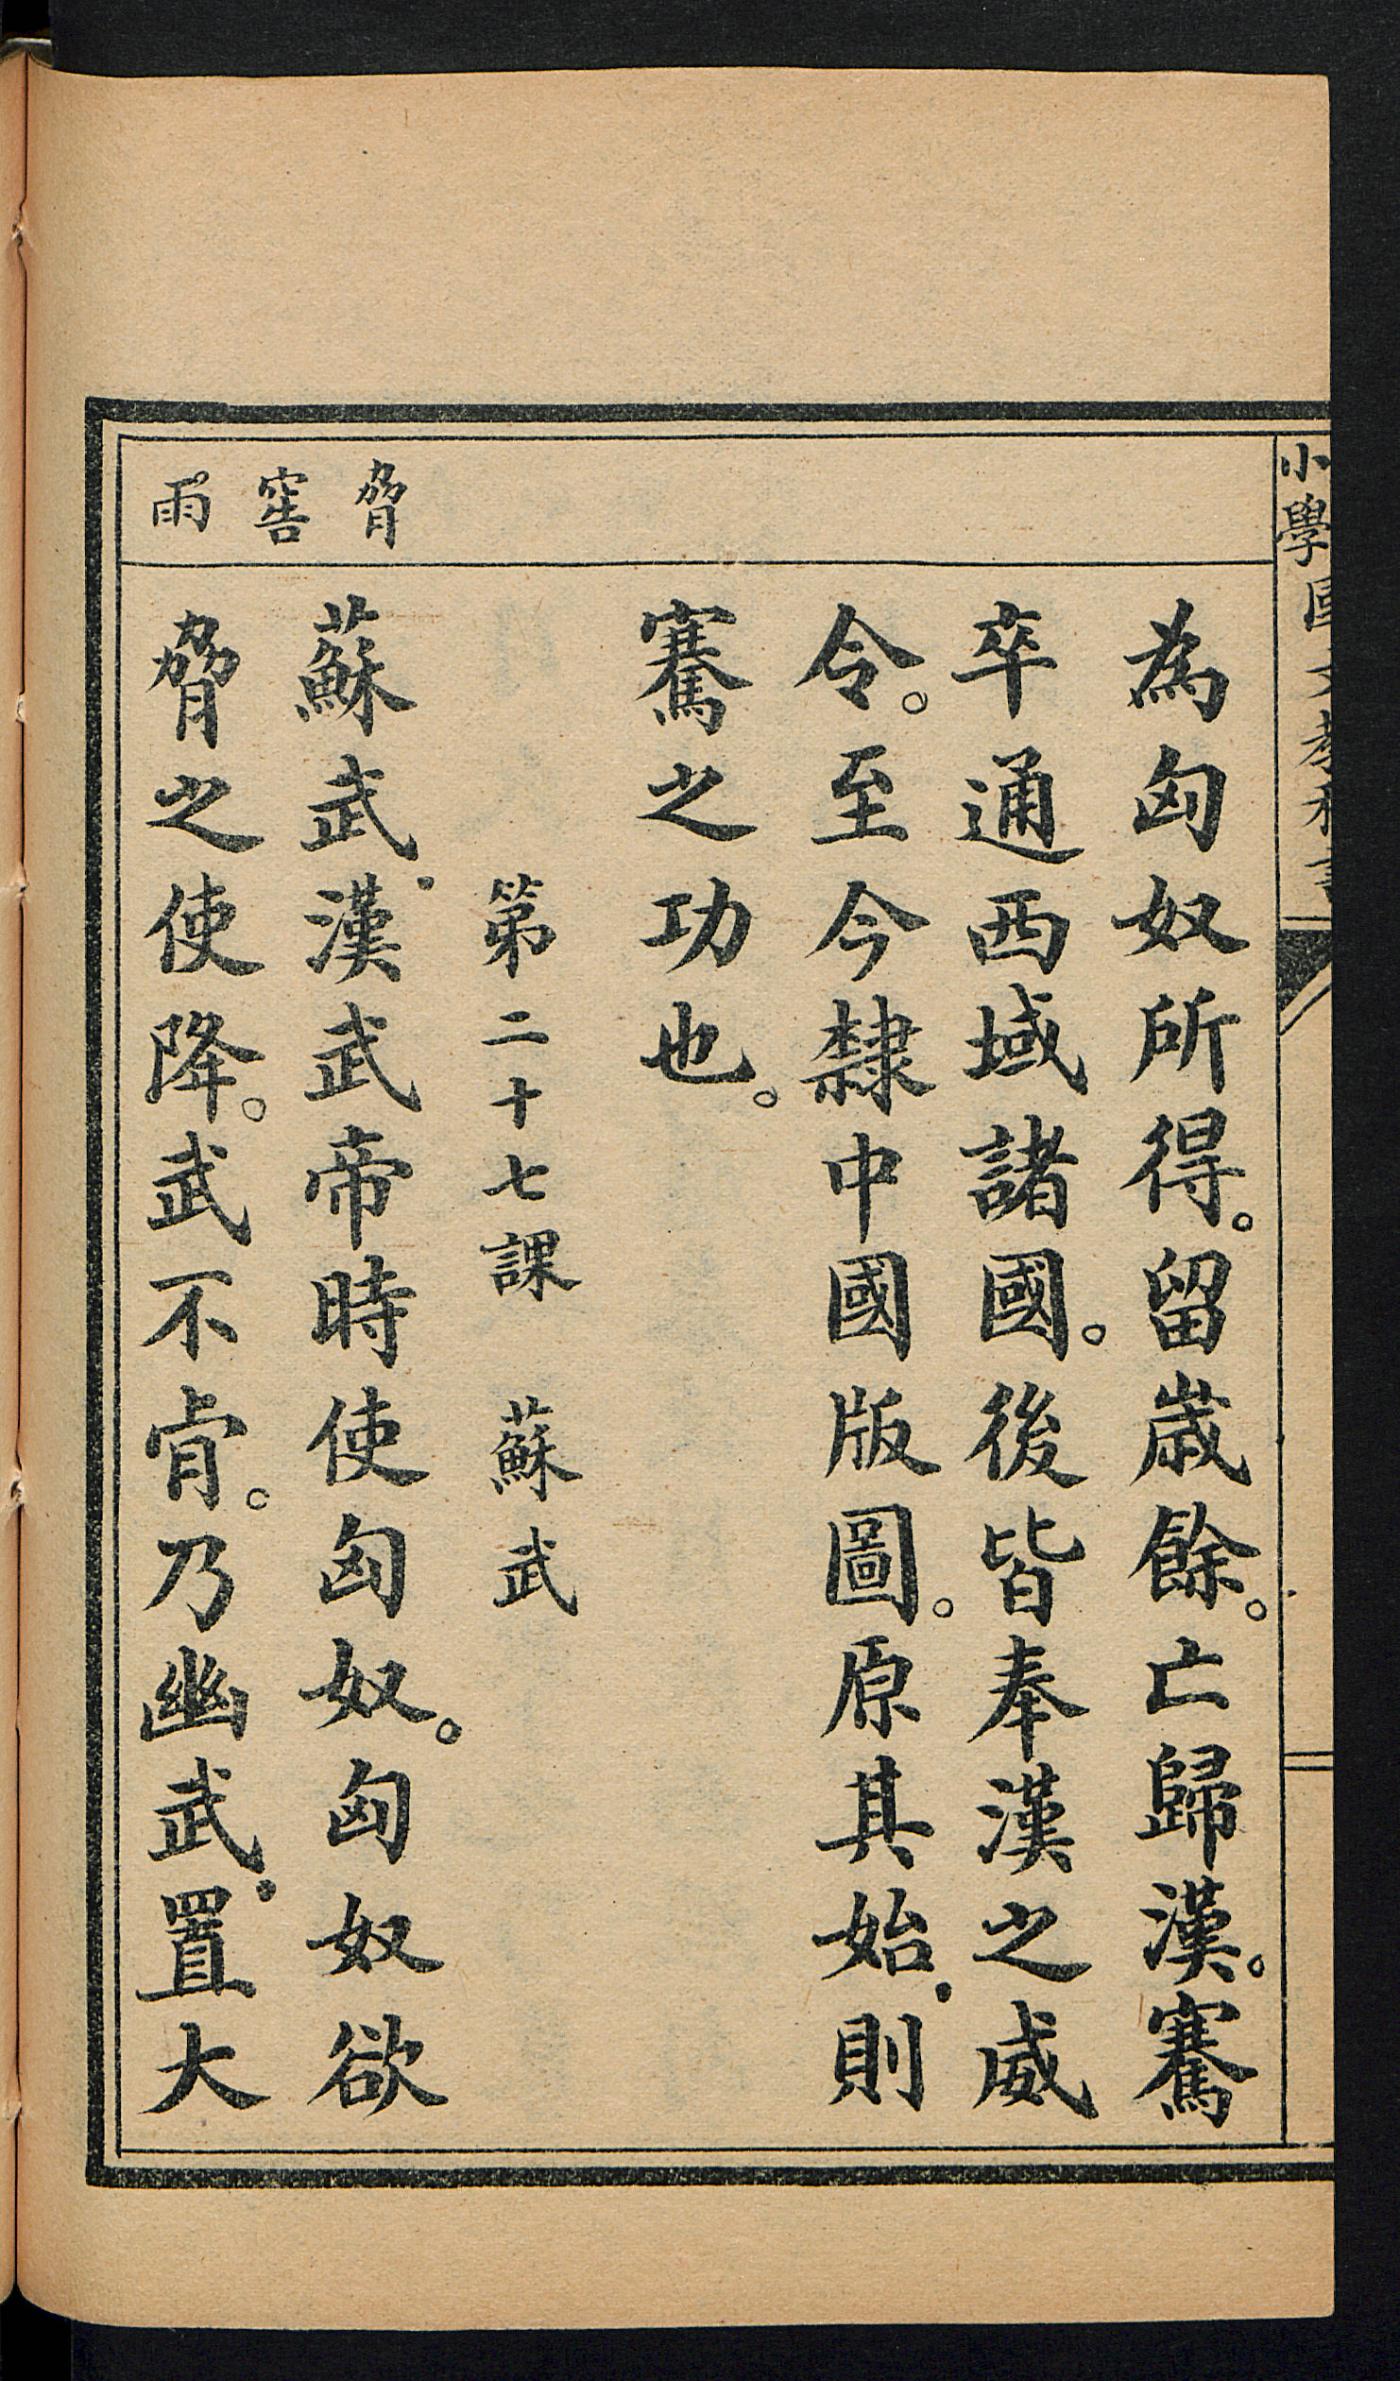 小學國文教科書
為匈奴所得。留歲餘。亡歸漢。騫
卒通西域諸國。後皆奉漢之威
令。至今隸中國版圖。原其始．則
騫之功也。
第二十七課　蘇武
脅
窖
雨
蘇武．漢武帝時使匈奴。匈奴欲
脅之使降。武不肯。乃幽武．置大